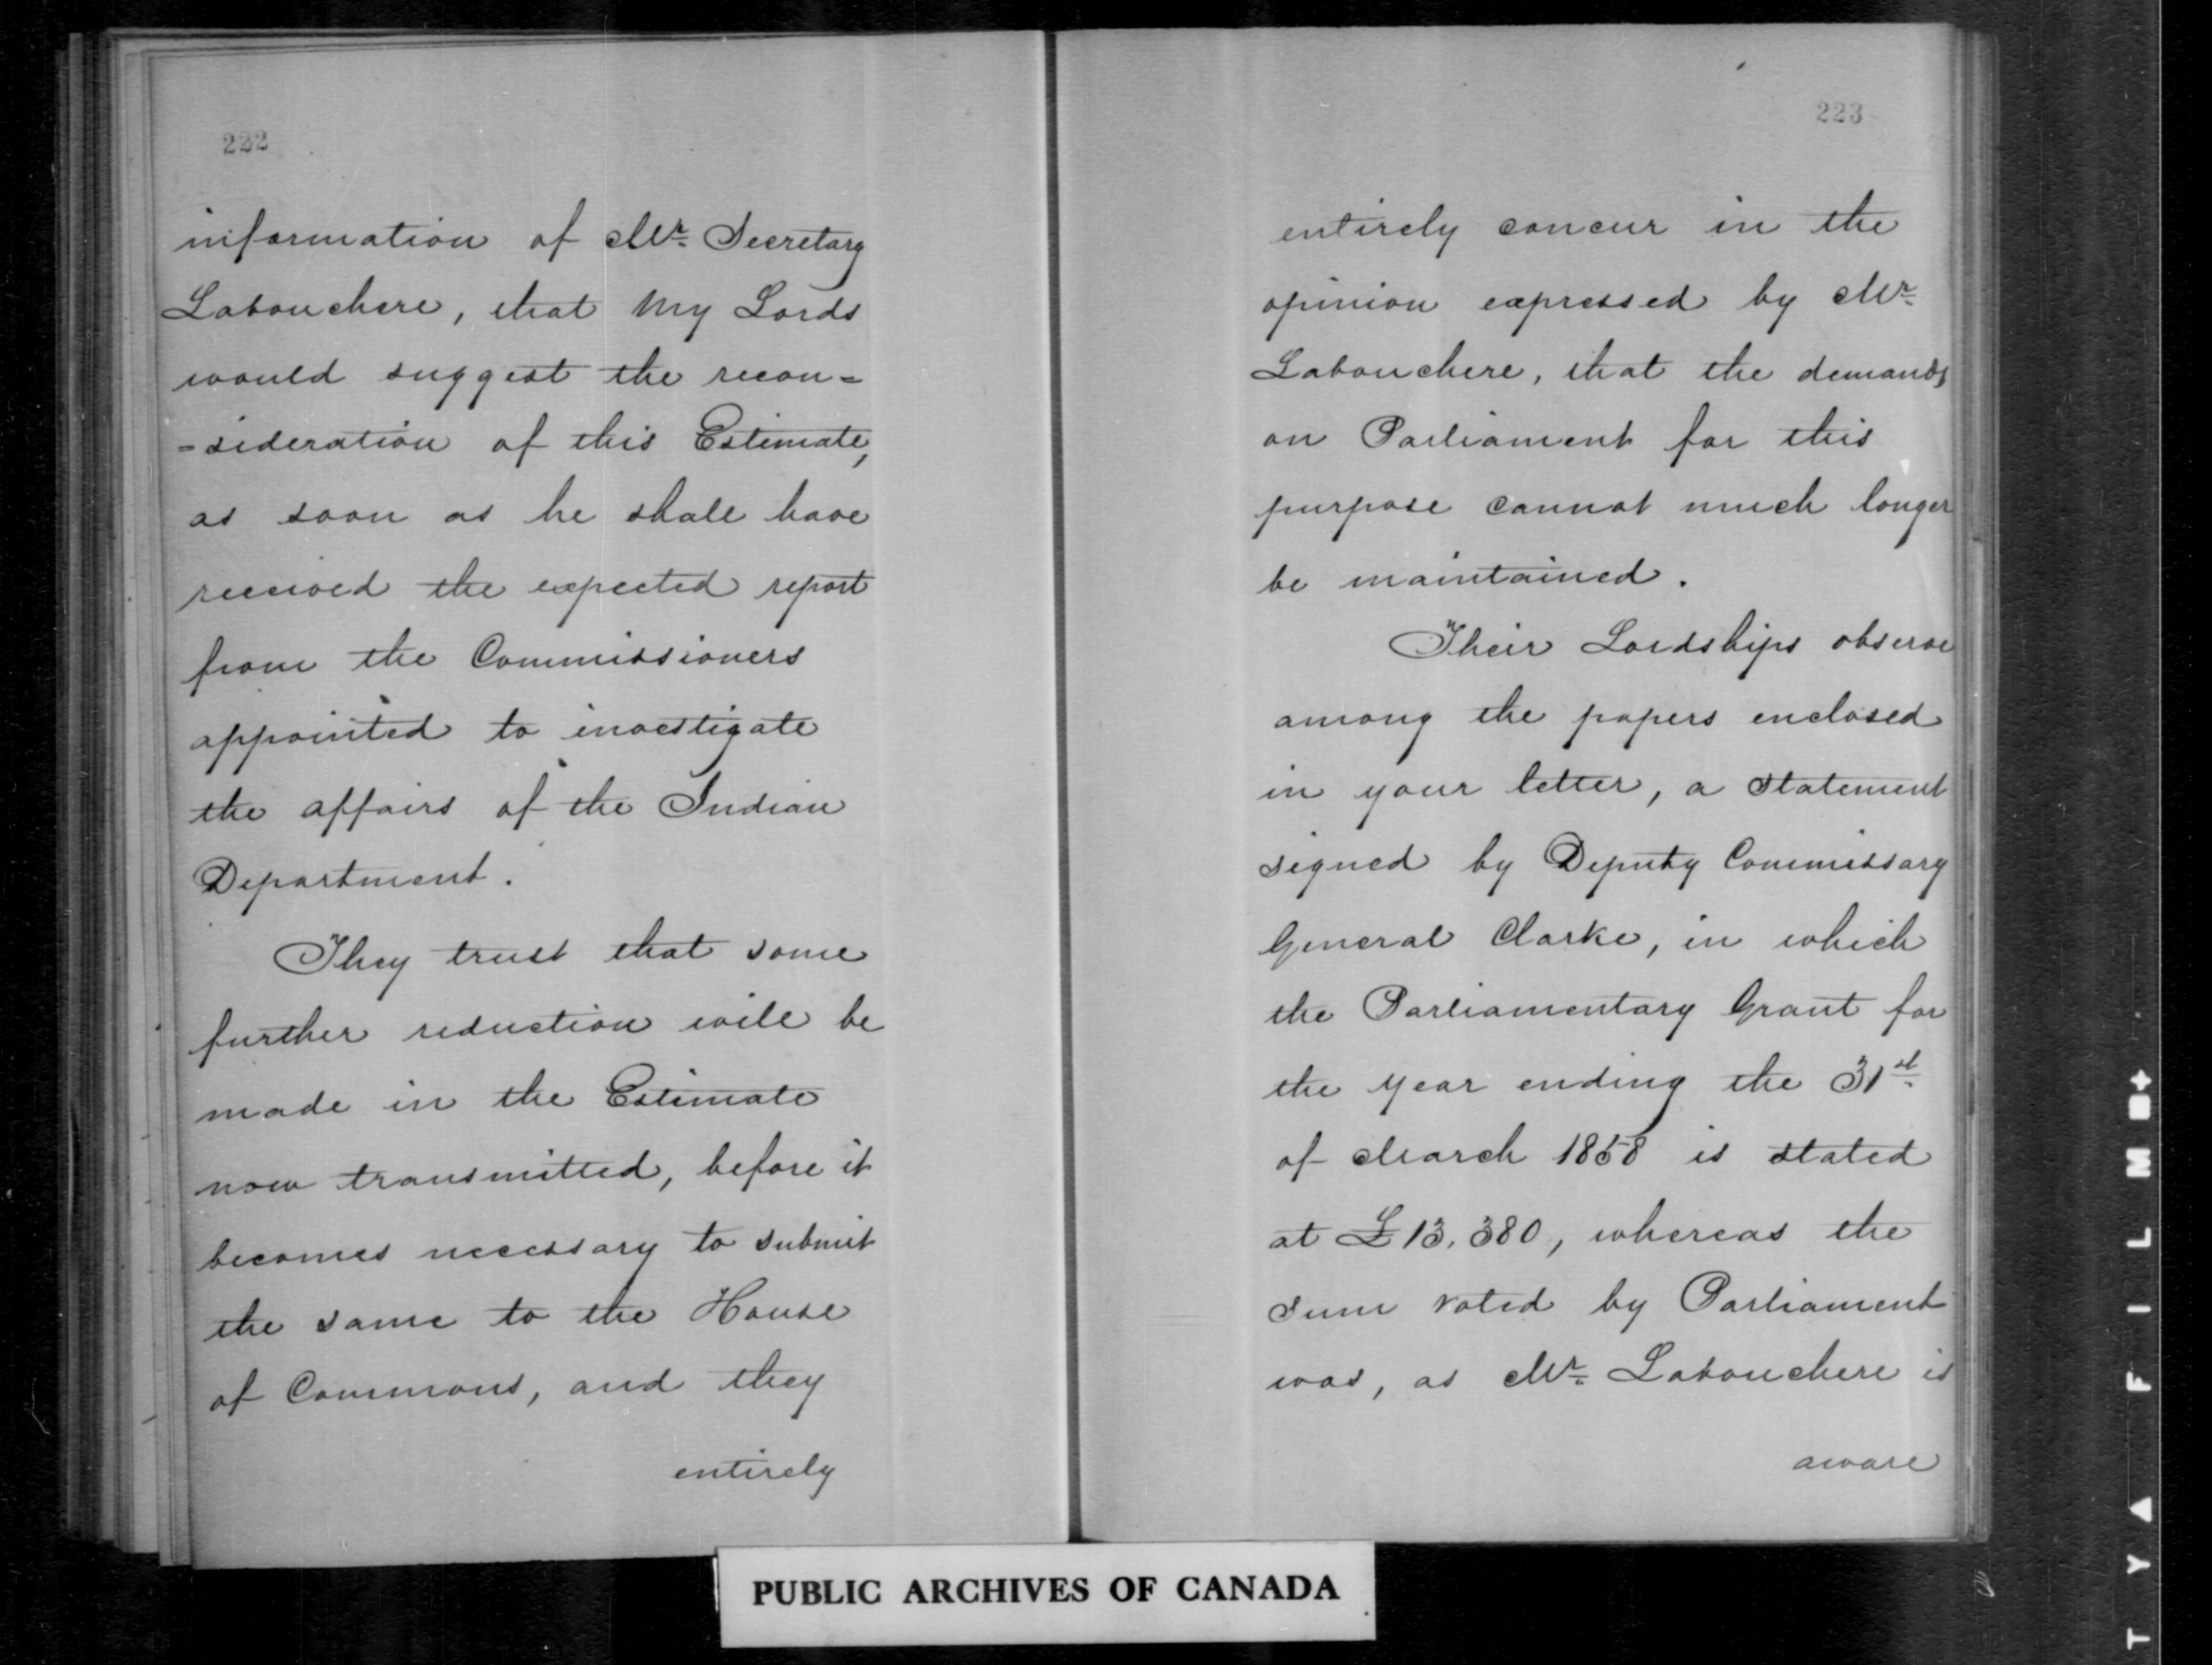 222
information of Mr. Secretary
Labouchere, that My Lords
would suggest the recon=
=sideration of this Estimate,
as soon as he shall have
received the expected report
from the Commissioners
appointed to investigate
the affairs of the Indian
Department.
They trust that some
further reduction will be
made in the Estimate
now transmitted, before it
becomes necessary to submit
the same to the House
of Commons, and they
entirely
223
entirely concur in the
opinion expressed by Mr.
Labouchere, that the demands
on Parliament for this
purpose cannot much longer
be maintained.
Their Lordships observe
among the papers enclosed
in your letter, a statement
signed by Deputy Commissary
General Clarke, in which
the Parliamentary Grant for
the year ending the 31st
of March 1858 is stated
at £13,380, whereas the
sum voted by Parliament
was, as Mr. Labouchere is
aware
PUBLIC ARCHIVES OF CANADA
TYA FILM